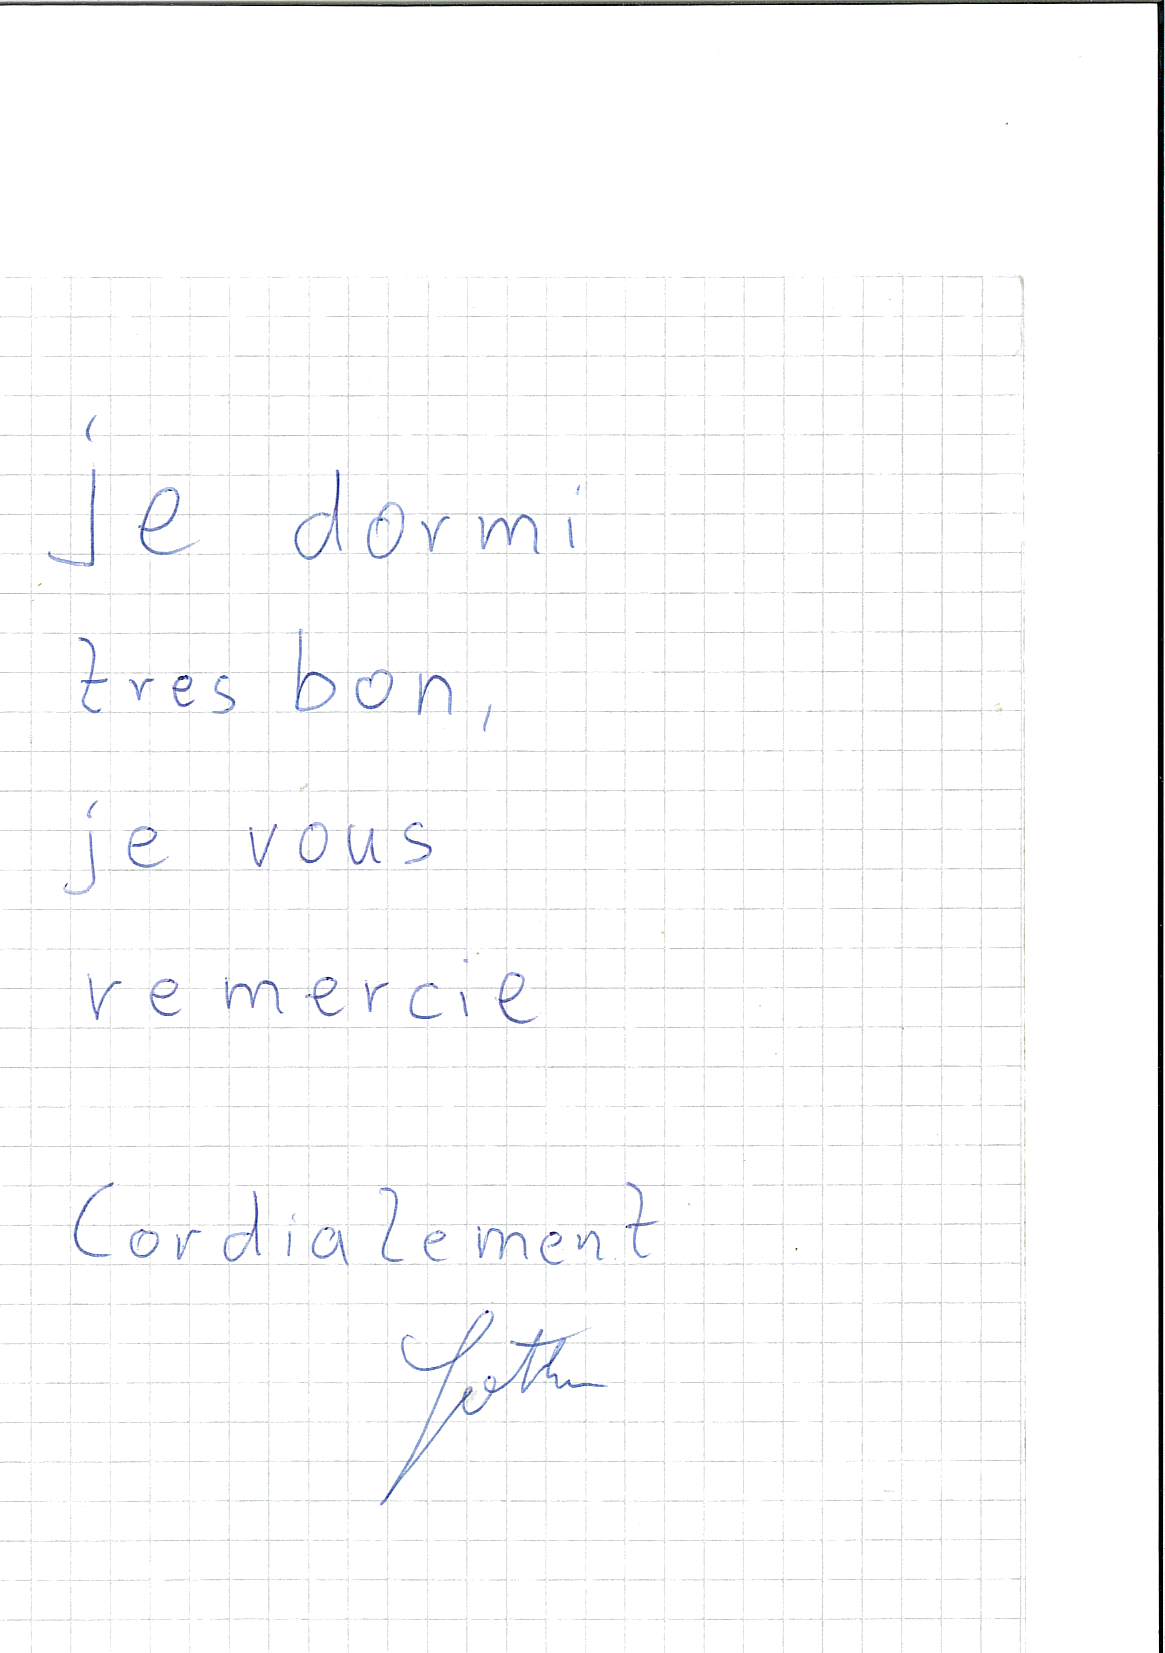 je dormi
tres bon,
je vous
remercie
Cordialement